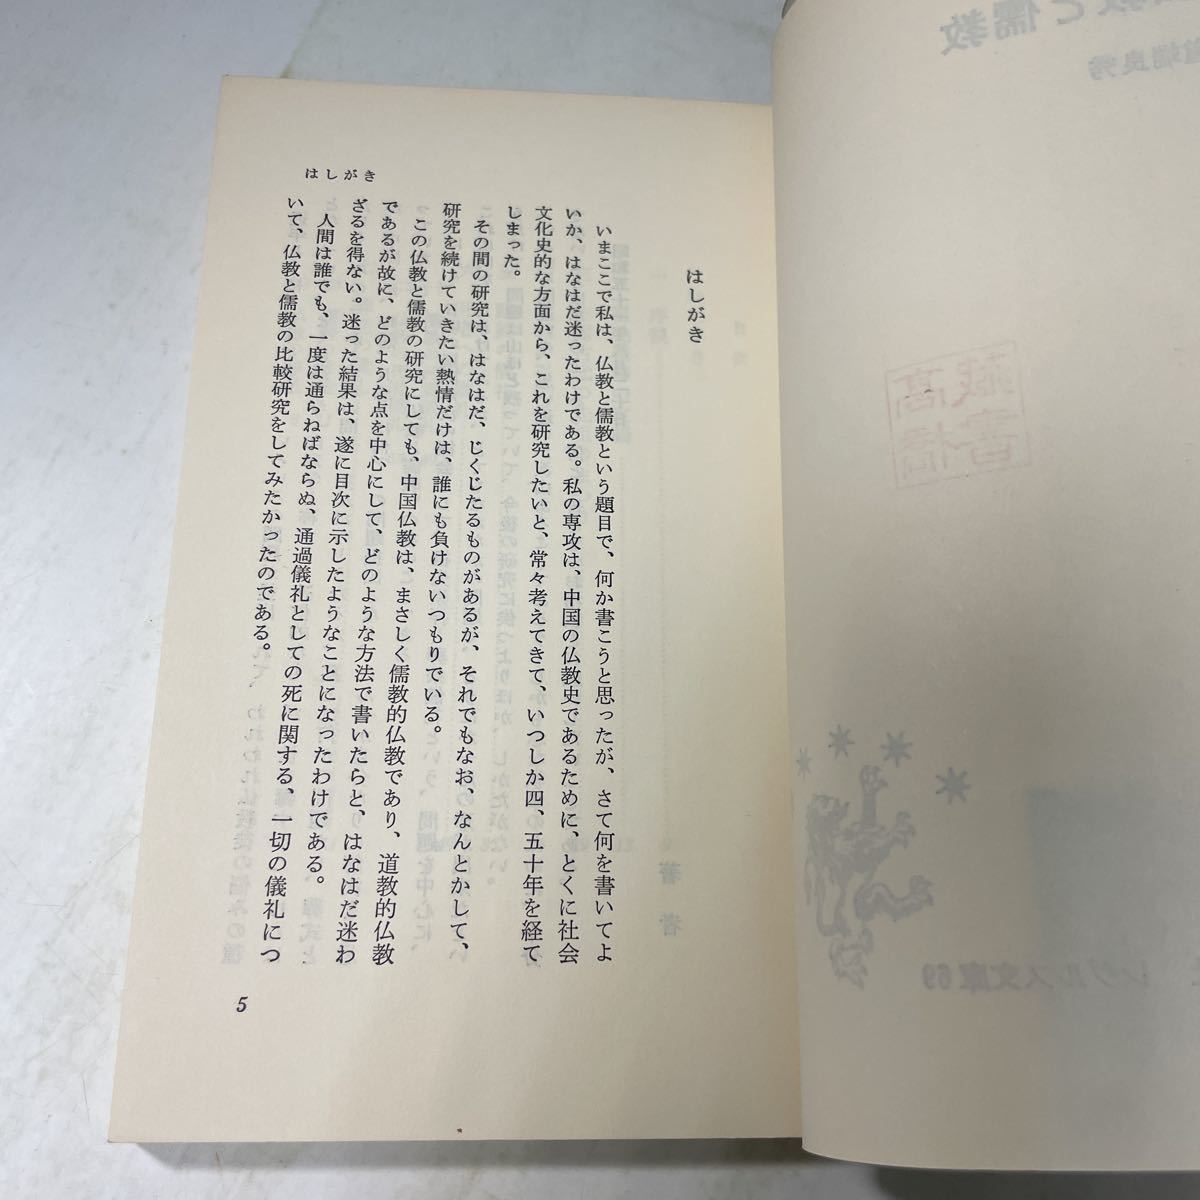 はしがき
はしがき
いまここで私は、仏教と儒教という題目で、何か書こうと思ったが、さて何を書いてよ
いか、はなはだ迷ったわけである。私の専攻は、中国の仏教史であるために、とくに社会
文化史的な方面から、これを研究したいと、常々考えてきて、いつしか四、五十年を経て
しまった。
その間の研究は、はなはだ、じくじたるものがあるが、それでもなお、なんとかして、
研究を続けていきたい熱情だけは、誰にも負けないつもりでいる。
この仏教と儒教の研究にしても、中国仏教は、まさしく儒教的仏教であり、道教的仏教
であるが故に、どのような点を中心にして、どのような方法で書いたらと、はなはだ迷わ
ざるを得ない。迷った結果は、遂に目次に示したようなことになったわけである。
人間は誰でも、一度は通らねばならぬ、通過儀礼としての死に関する、一切の儀礼につ
いて、仏教と儒教の比較研究をしてみたかったのである。
5
教と儒教
道端良秀
レグルス文庫 69